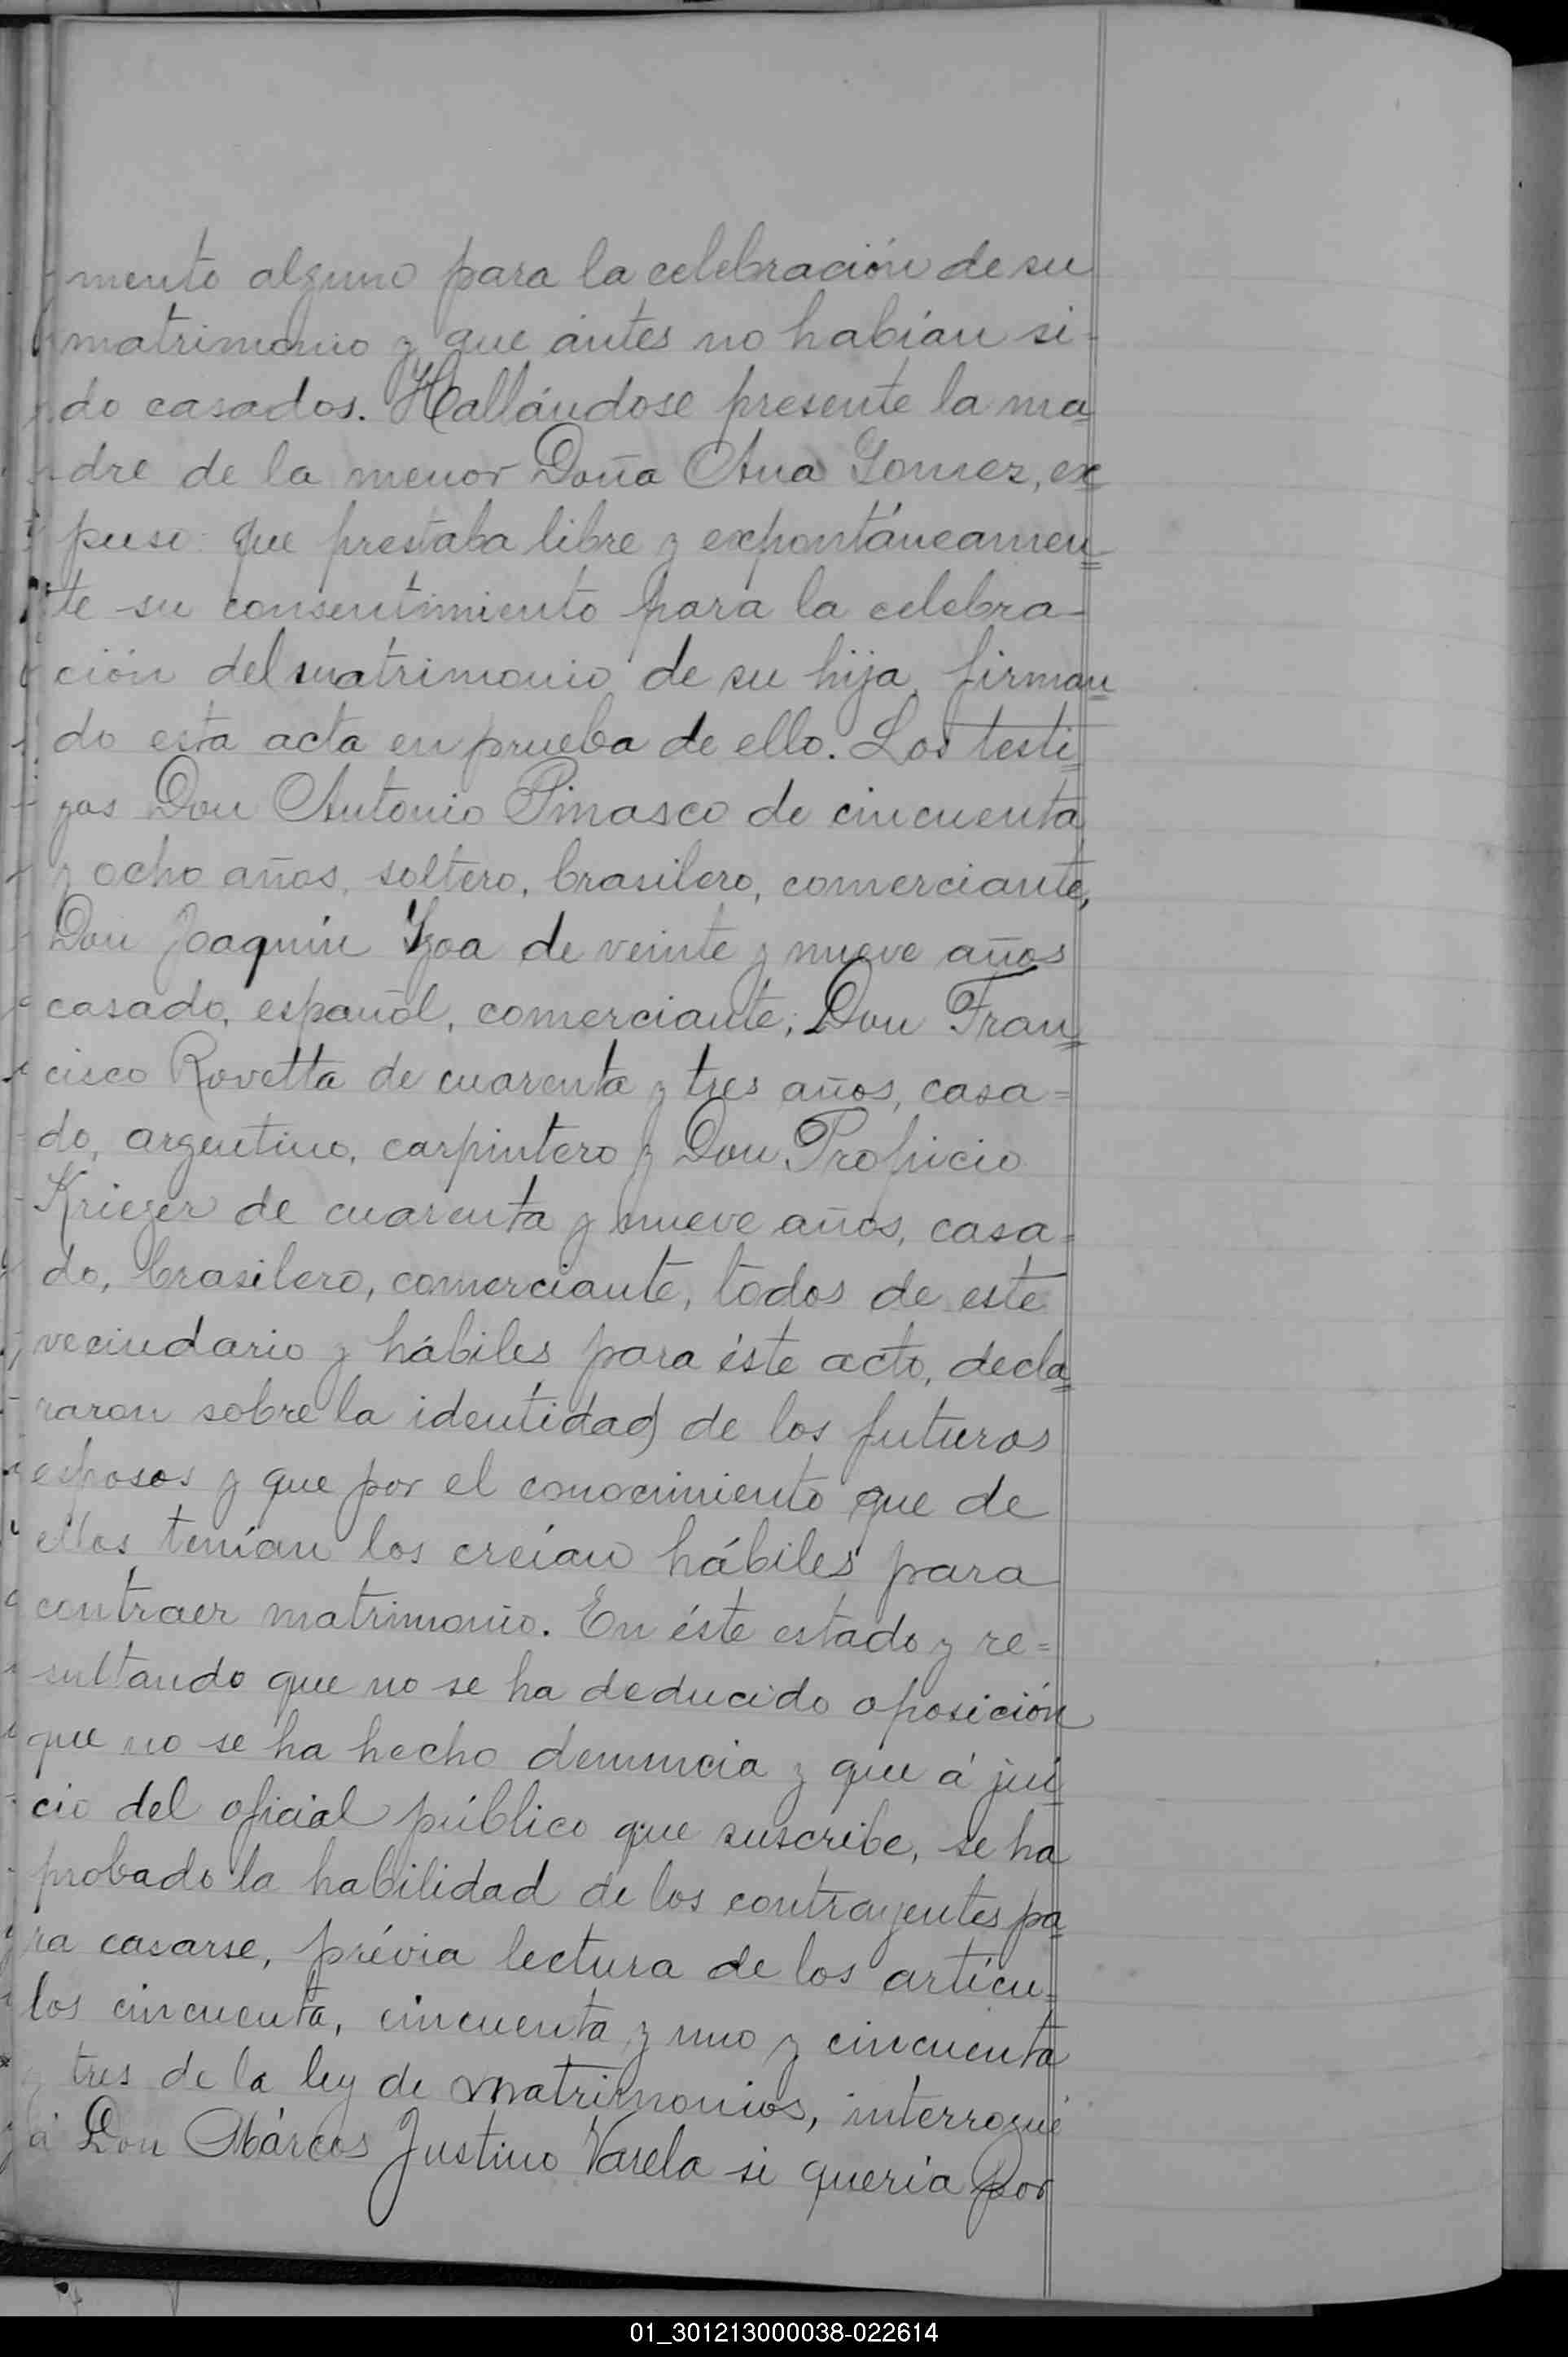 mento alguno para la celebración de su
matrimonio y que ántes no habían si-
do casados. Hallándose presente la ma=
dre de la menor Doña Ana Gomez, ex=
puso: que prestaba libre y expontáneamen=
te su consentimiento para la celebra-
ción del matrimonio de su hija, firman=
do esta acta en prueba de ello. Los testi=
gos Don Antonio Pinasco de cincuenta
y ocho años, soltero, brasilero, comerciante,
Don Joaquín de veinte y nueve años
casado, español, comerciante; Don Fran=
cisco Rovetta de cuarenta y tres años, casa=
do, argentino, carpintero y Don Propicio
Krieger de cuarenta y nueve años, casa=
do, brasilero, comerciante, todos de este
vecindario y hábiles para éste acto, decla=
raron sobre la identidad de los futuros
esposos y que por el conocimiento que de
ellos tenían los creían hábiles para
contraer matrimonio. En éste estado y re=
sultando que no se ha deducido oposición
que no se ha hecho denuncia y que á jui=
cio del oficial público que suscribe, se ha
probado la habilidad de los contrayentes pa=
ra casarse, prévia lectura de los artícu=
los cincuenta, cincuenta y uno y cincuenta
y tres de la ley de matrimonios, interrogué
á Don Márcos Justino Varela si quería por
01_301213000038-022614